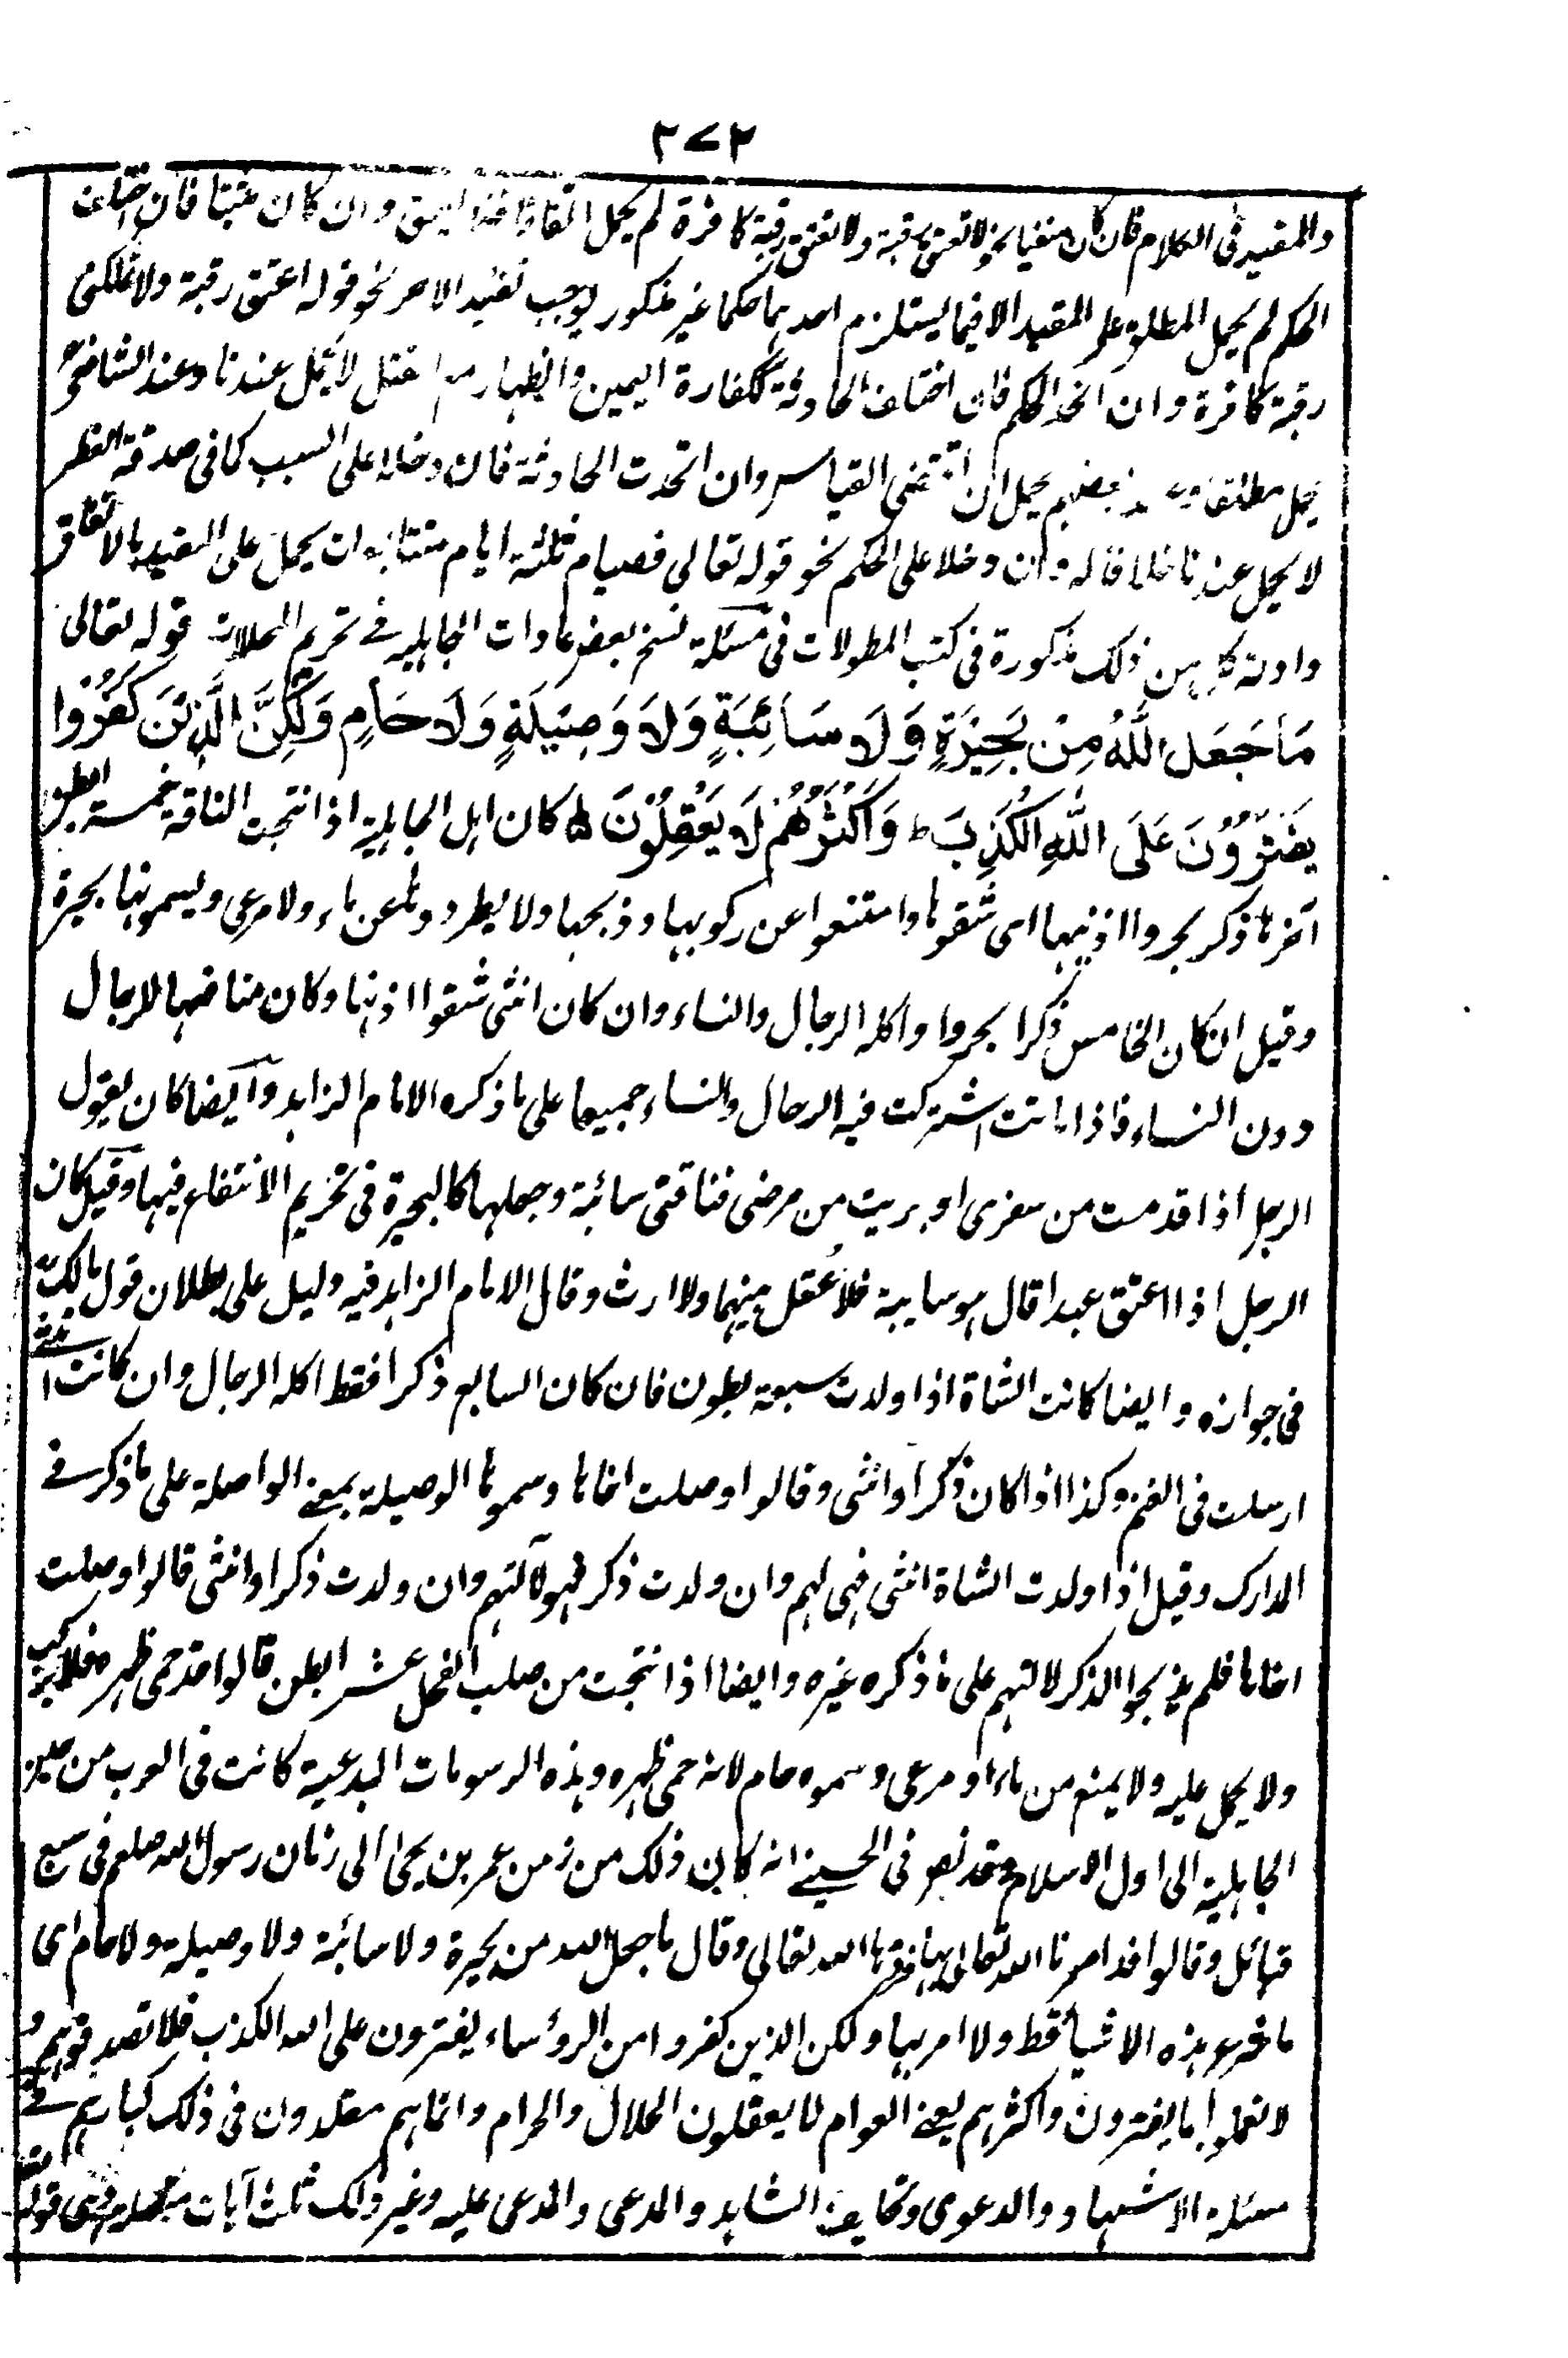 ٣٧٢
والمقيد فى الكلام فان كان منفيا نحو لا تعتق رقبة ولا تعتق رقبة كافرة لم يحمل اتفاقا وان كان مثبتا فان اختلف
الحكم لم يحمل المطلق على المقيد الا فيما يستلزم احدهما حكما غير مذكور يوجب تقييد الاخر نحو قوله اعتق رقبة ولا تملكنى
رقبة كافرة وان اتحد الحكم فان اختلف الحادثة ككفارة اليمين والظهار لا يحمل عندنا وعند الشافعى رح
يحمل مطلقا بعضهم يحمل ان اقتضى القياس وان اتحدت الحادثة فان دخلا على السبب كما فى صدقة الفطر
لا يحمل عندنا خلافا له وان دخلا على الحكم نحو قوله تعالى فصيام ثلثة ايام متتابعات يحمل على المقيد بالاتفاق
وادلة كل من ذلك مذكورة فى كتب المطولات فى مسئلة نسخ بعض عادات الجاهلية فے تحريم المحللات قوله تعالى
مَا جَعَلَ اللّٰهُ مِنْ بَحِيْرَةٍ وَّلَا سَائِبَةٍ وَّلَا وَصِيْلَةٍ وَّلَا حَامٍ وَّلٰكِنَّ الَّذِيْنَ كَفَرُوْا
يَفْتَرُوْنَ عَلَى اللّٰهِ الْكَذِبَ ط وَاَكْثَرُهُمْ لَا يَعْقِلُوْنَ كان اهل الجاهلية اذا نتجت الناقة خمسة ابطن
آخرها ذكر بحروا اذنيها اى شقوها وامتنعوا عن ركوبها وذبحها ولا يطردونها عن ماء ولا مرعى ويسمونها بحيرة
وقيل ان كان الخامس ذكرا بحروا واكله الرجال والنساء وان كان انثى شقوا اذنها وكان منافعها للرجال
دون النساء فاذا ماتت اشتركت فيه الرجال والنساء جميعا على ما ذكره الامام الزاهد وايضا كان يقول
الرجل اذا قدمت من سفرى او بريت من مرضى فناقتى سائبة وجعلها كالبحيرة فى تحريم الانتفاع فيها وقيل كان
الرجل اذا اعتق عبدا قال هو سايبة فلا عقل بينهما ولا ارث وقال الامام الزاهد فيه دليل على بطلان قول مالك رح
فى جوازه وايضا كانت الشاة اذا ولدت سبعة بطون فان كان السابع ذكرا فقط اكله الرجال وان كانت انثى
ارسلت فى الغنم وكذا اذا كان ذكرا وانثى وقالوا وصلت اخاها وسموها الوصيلة بمعنے الواصلة على ما ذكر فے
المدارك وقيل اذا ولدت الشاة انثى فهى لهم وان ولدت ذكر فهو لآلهتهم وان ولدت ذكرا وانثى قالوا وصلت
اخاها فلم يذبحوا الذكر لالهتهم على ما ذكره غيره وايضا اذا نتجت من صلب الفحل عشر ابطن قالوا قد حمى ظهره فلا يركب
ولا يحمل عليه ولا يمنع من ماء او مرعى وسموه حام لانه حمى ظهره وهذه الرسومات البدعية كانت فى العرب من حين
الجاهلية الى اول الاسلام وقد نص فى الحسينے انه كان ذلك من زمن عمر بن يحى الى زمان رسول الله صلعم فى سبع
قبائل وقالوا قد امرنا الله تعالى بها الله تعالى وقال ما جعل الله من بحيرة ولا سائبة ولا وصيلة ولا حام اى
ما شرع هذه الاشياء قط ولا امر بها ولكن الذين كفروا من الرؤساء يفترون على الله الكذب فلا تصدقوهم و
لا تعملوا بما يفترون واكثرهم يعنے العوام لا يعقلون الحلال والحرام وانما هم مقلدون فى ذلك كبارهم فے
مسئلة الاشهاد والدعوى وتحليف الشاهد والمدعى والمدعى عليه وغير ذلك ثلث آيات وهى قوله